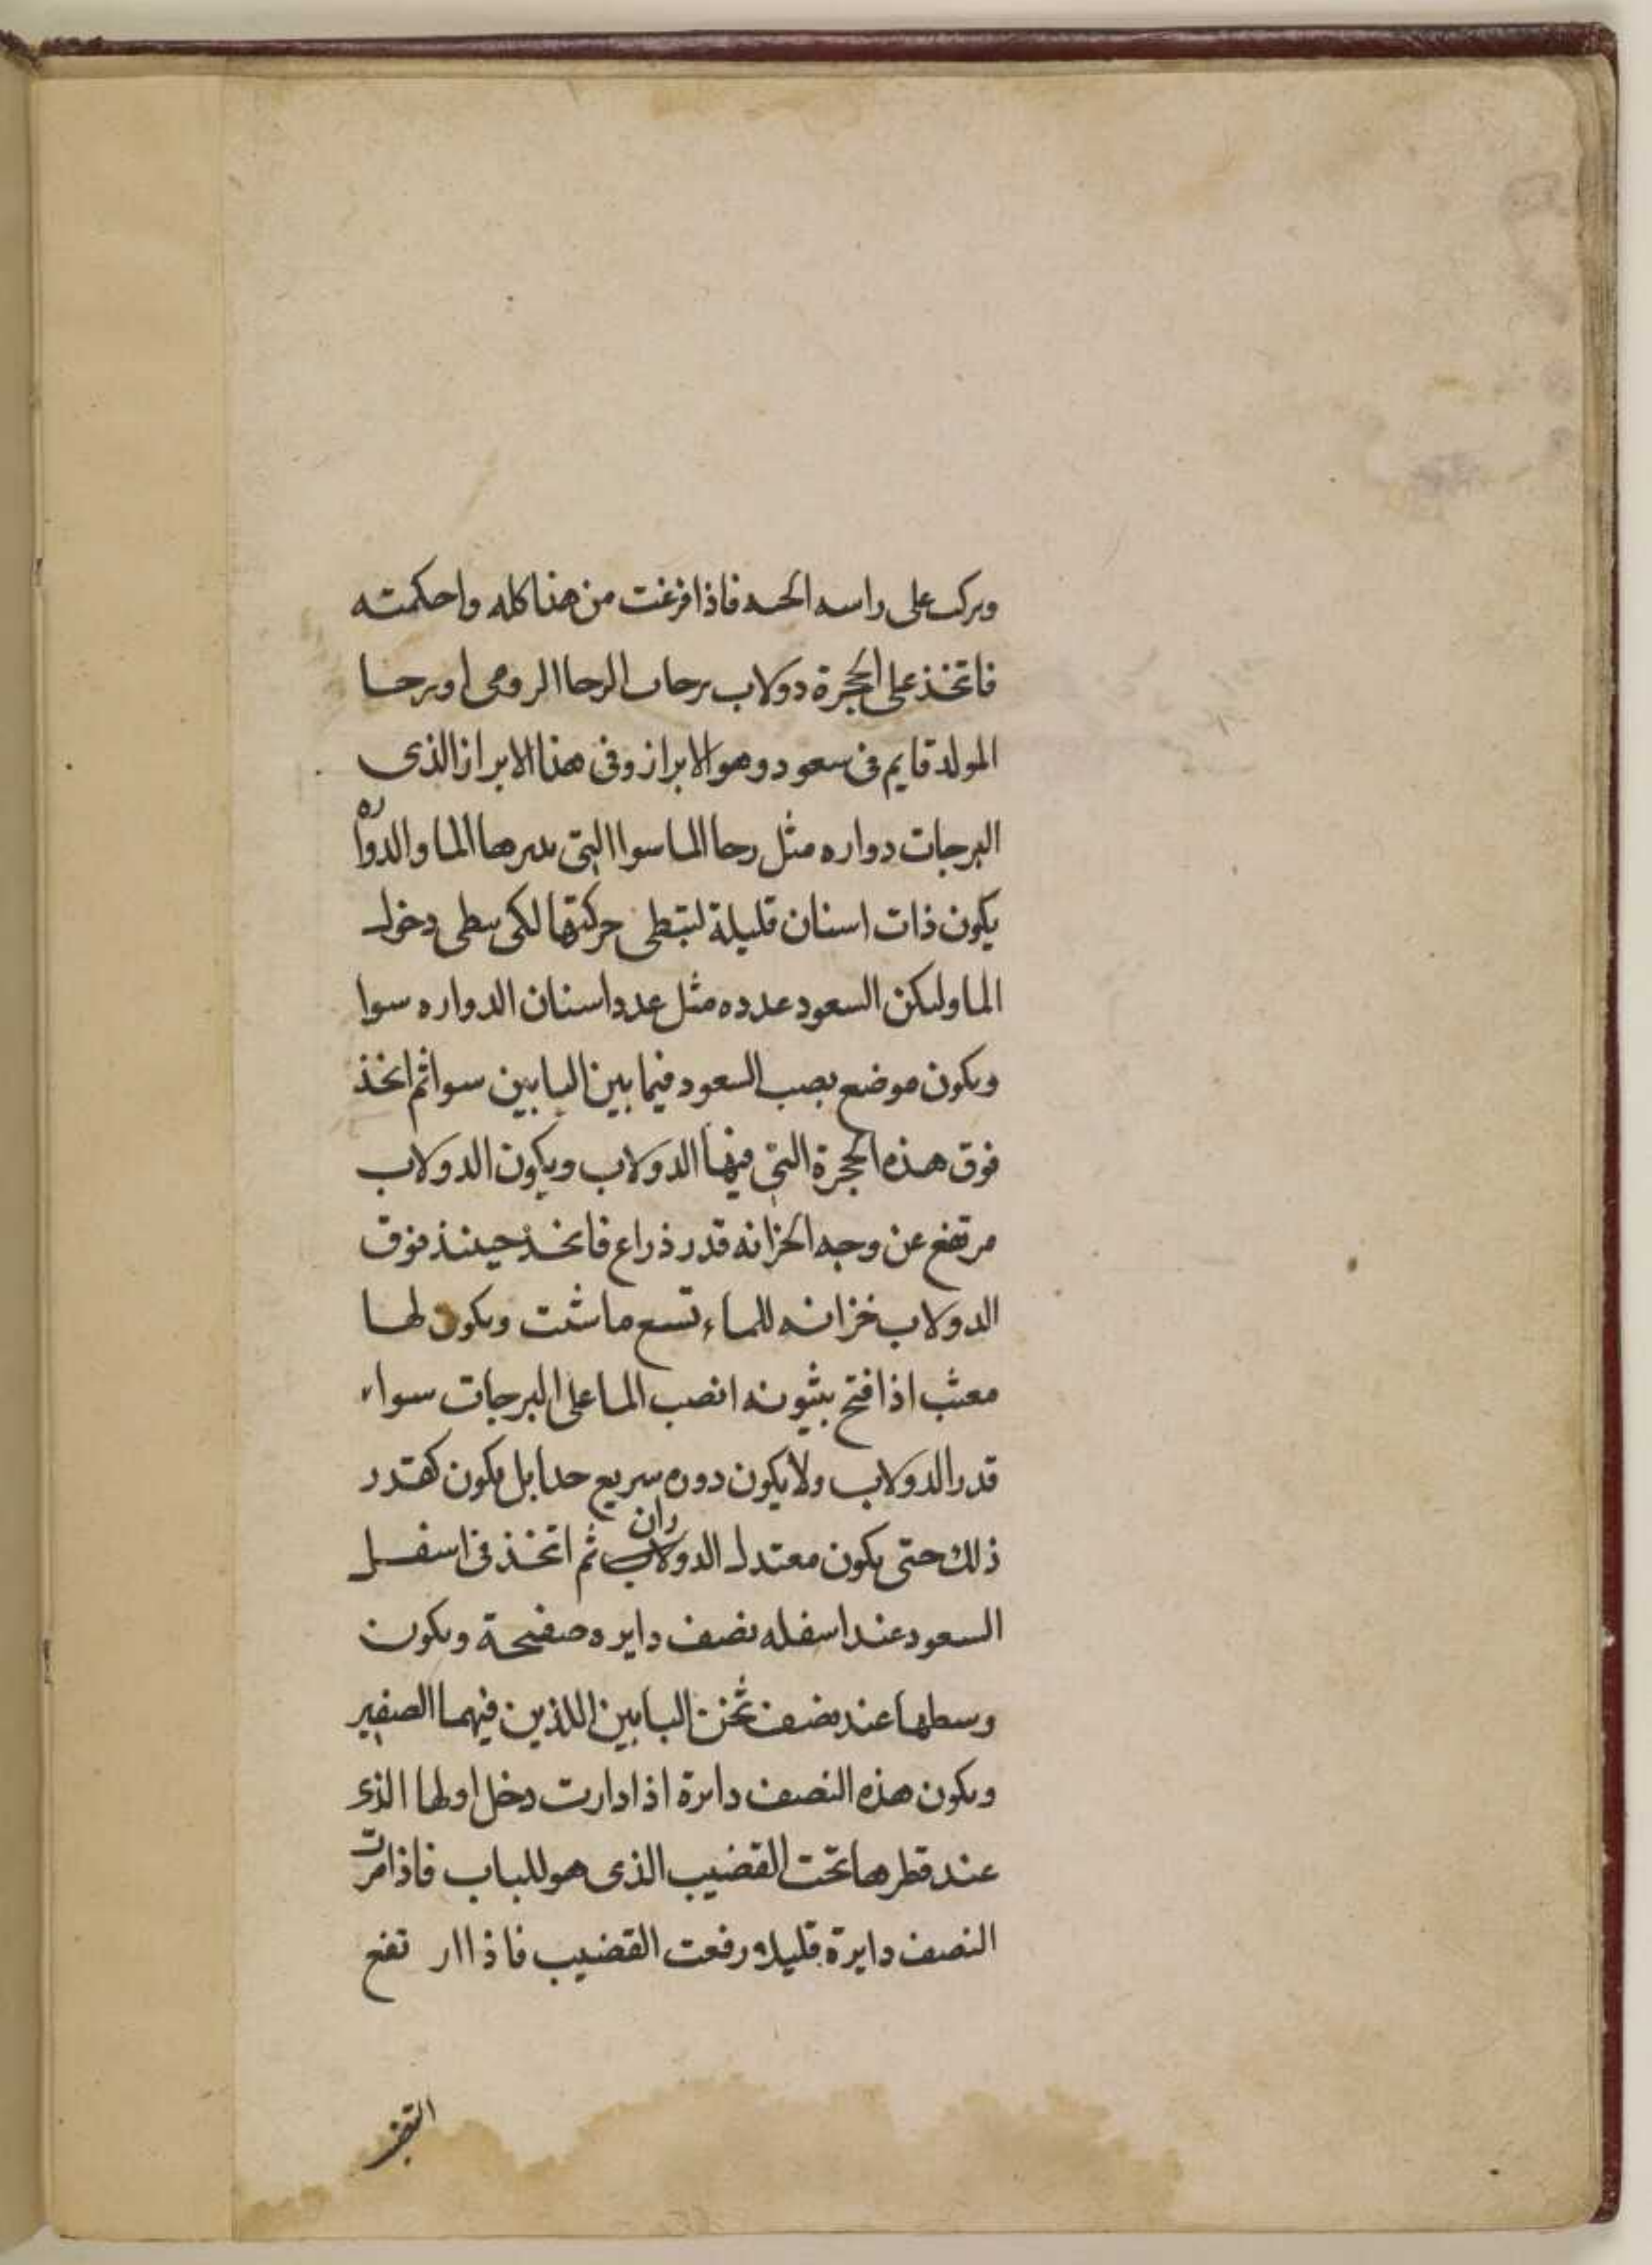 وىركب على راسه الحىه فاذا فرغت من هذا كله واحكمته
فاتخذ على الحجرة دولاب برحاب الرحا الرومى او برحا
المولد قايم فى سعود وهو الابراز وفى هذا الابراز الذى
البرجات دواره مثل رحا الما سوا التى ىدىرها الما والدواره
يكون ذات اسنان قليلة لتبطى حركتها لكى ىبطى دخول
الما ولىكن السعود عدده مثل عدد اسنان الدواره سوا
وىكون موضع ىصب السعود فيما بين البابين سوا ثم اتخذ
فوق هذه الحجرة التى فيها الدولاب ويكون الدولاب
مرتفع عن وجه الخزانه قدر ذراع فاتخذ حينئذ فوق
الدولاب خزانه للماء تسع ما شئت وىكون لها
مىعب اذا فتح بثيونه انصب الما على البرجات سواء
قدر الدولاب ولا يكون دوره سريع جدا بل يكون كقدر
ذلك حتى يكون معتدل الدوران ثم اتخذ فى اسفل
السعود عند اسفله نصف دايره صفيحة وىكون
وسطها عند نصف ثخن البابين اللذين فيهما الصفير
وىكون هذه النصف دايرة اذا دارت دخل اولها الذى
عند قطرها تحت القضيب الذى هو للباب فاذا مرت
النصف دايرة قليلا رفعت القضيب فاذا ار تفع